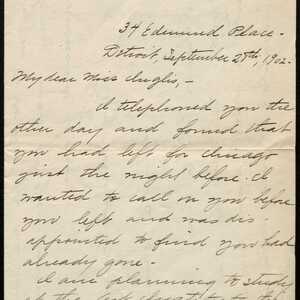 34 Edmund Place -
Detroit, September 28th, 1902.
My dear Miss Inglis, -
I telephoned you the
other day and found that
you had left for Chicago
just the night before. I
wanted to call on you before
you left and was dis-
appointed to find you had
already gone -
I am planning to study
at the